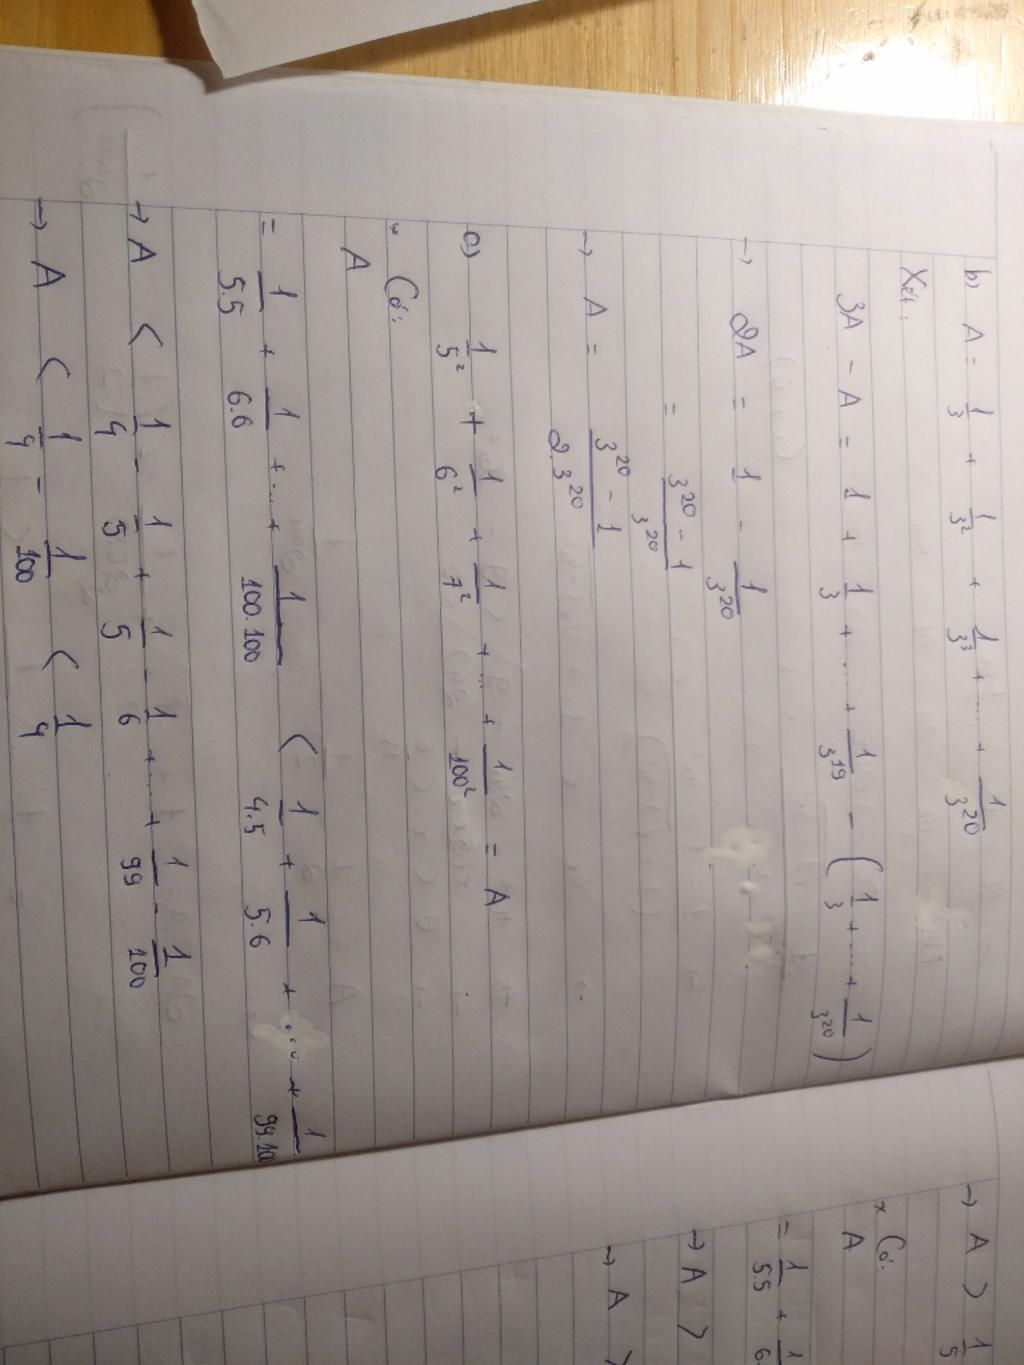 b) A = 1/3 + 1/3² + 1/3³ + .... + 1/3²⁰
Xét:
3A - A = 1 + 1/3 + .... + 1/3¹⁹ - (1/3 + .... + 1/3²⁰)
→ 2A = 1 - 1/3²⁰
= (3²⁰ - 1)/3²⁰
→ A = (3²⁰ - 1)/(2.3²⁰)
c) 1/5² + 1/6² + 1/7² + ... + 1/100² = A
* Có:
A
= 1/5.5 + 1/6.6 + ... + 1/100.100 < 1/4.5 + 1/5.6 + .... + 1/99.100
→ A < 1/4 - 1/5 + 1/5 - 1/6 + .... + 1/99 - 1/100
→ A < 1/4 - 1/100 < 1/4
→ A > 1/5
* Có:
A
= 1/5.5 + 1/6.
→ A >
→ A >